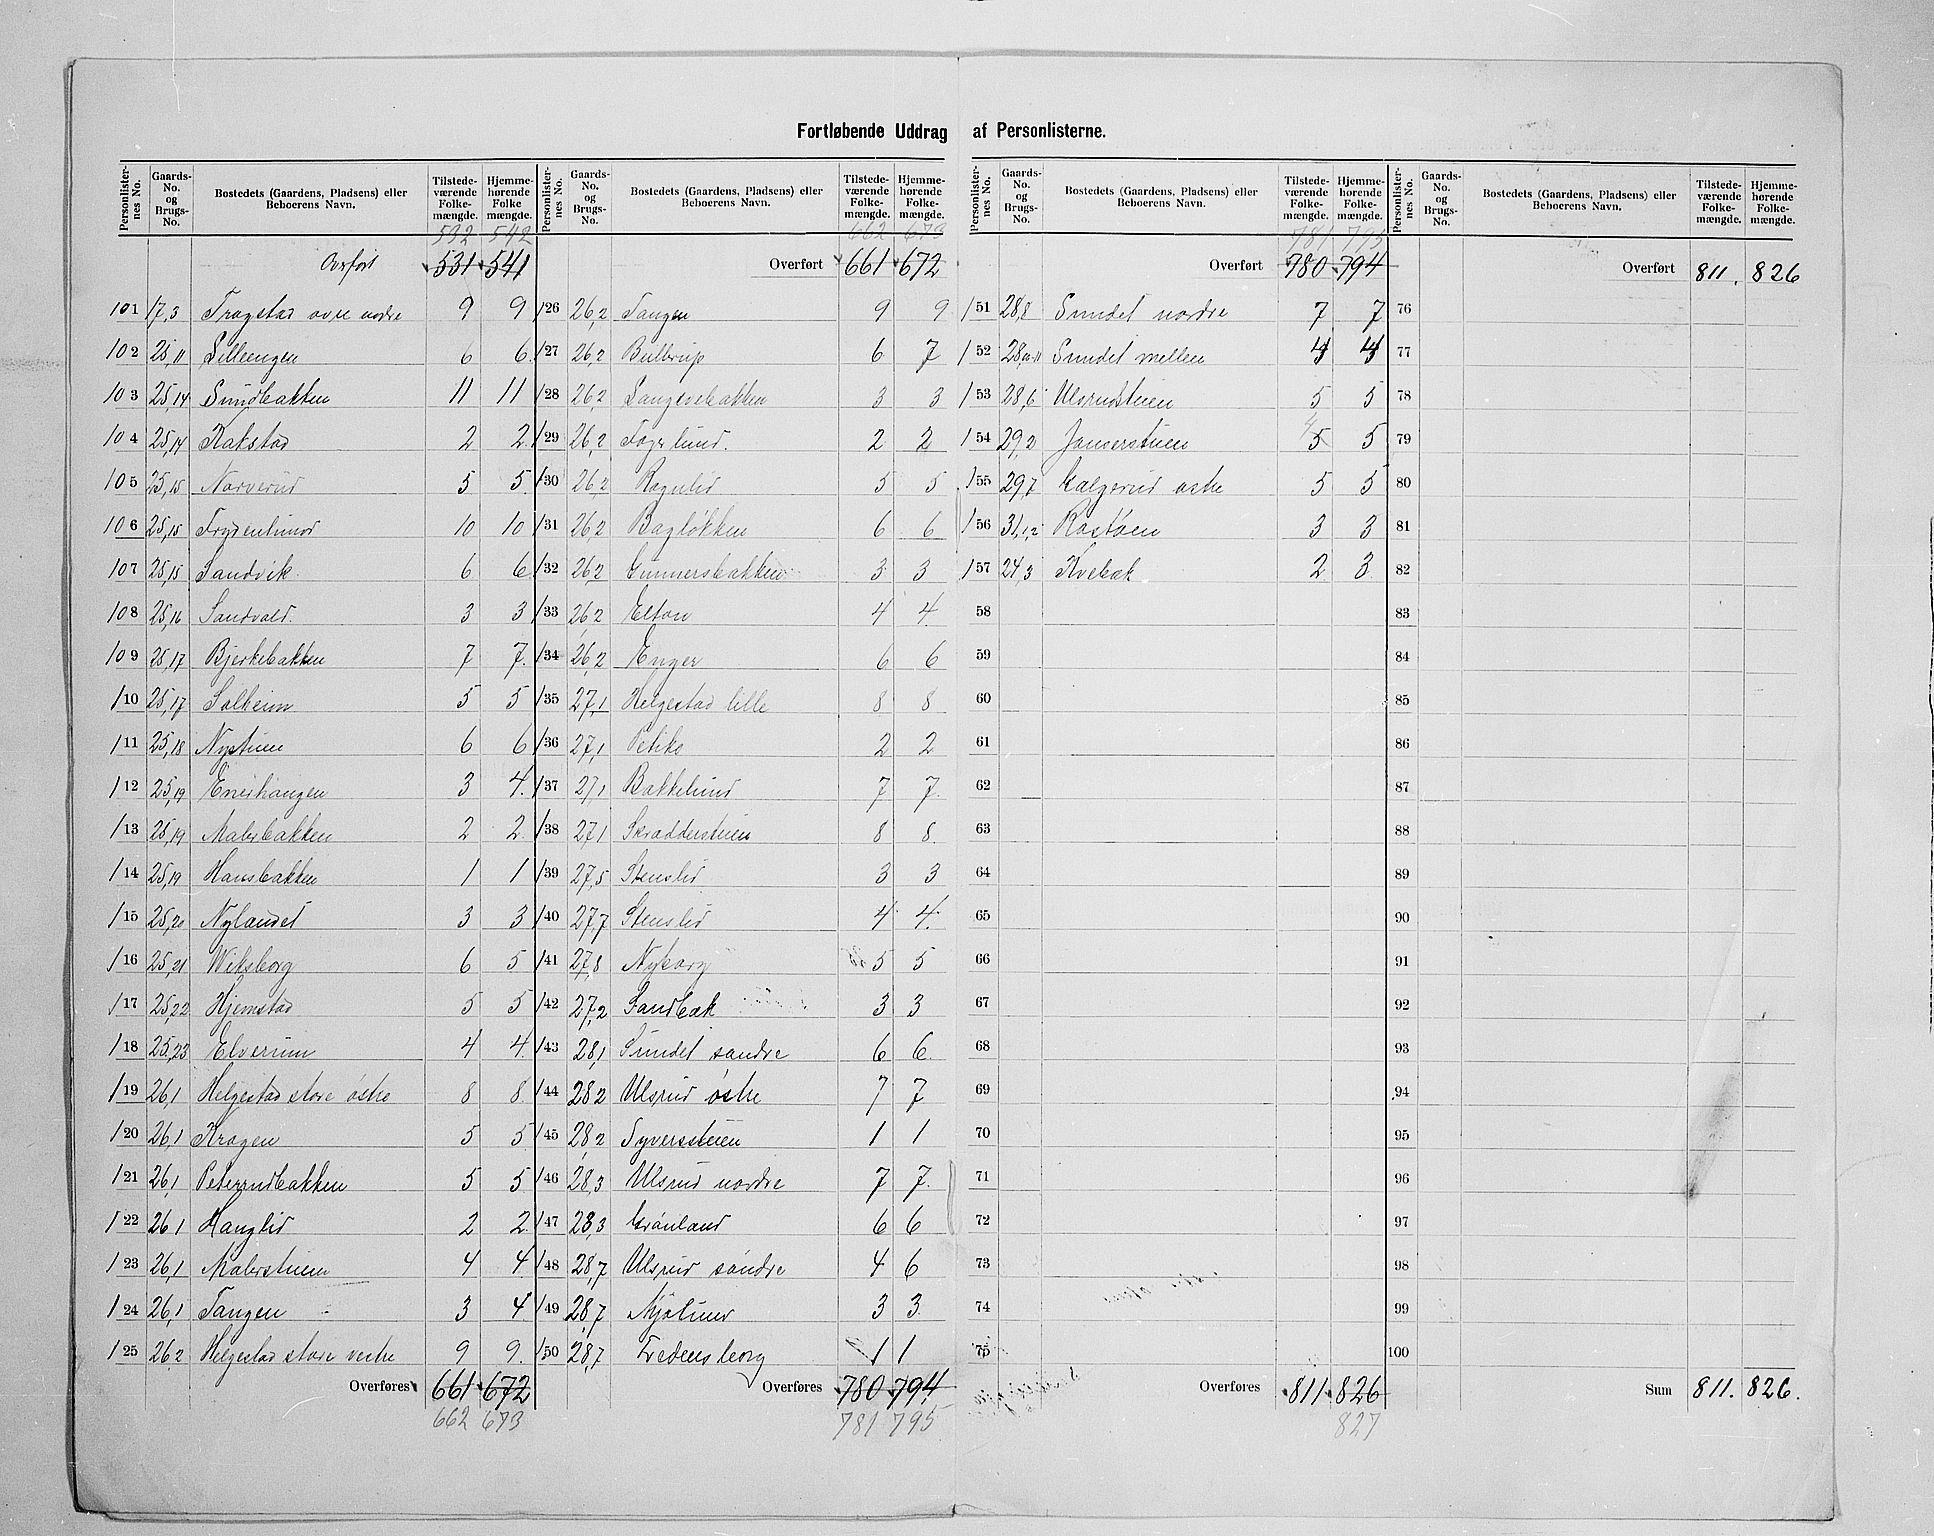 Fortløbende Uddrag af Personlisterne.
Personlisternes No. Gaards-No. og Brugs-No. Bostedets (Gaardens, Pladsens) eller Beboerens Navn. Tilstedeværende Folkemængde. Hjemmehørende Folkemængde.
532 542
Overført 531 541
101 17,3 Trogstad øvre nordre 9 9
102 25,11 Lilleengen 6 6
103 25,14 Sundbakken 11 11
104 25,14 Rakstad 2 2
105 25,15 Narverud 5 5
106 25,15 Frydenlund 10 10
107 25,15 Sandvik 6 6
108 25,16 Sandvold 3 3
109 25,17 Bjerkebakken 7 7
110 25,17 Solheim 5 5
111 25,18 Nystuen 6 6
112 25,19 Enershaugen 3 4
113 25,19 Malerbakken 2 2
114 25,19 Hansbakken 1 1
115 25,20 Nylandet 3 3
116 25,21 Wiksborg 6 5
117 25,22 Hjemstad 5 5
118 25,23 Elverum 4 4
119 26,1 Helgestad store östre 8 8
120 26,1 Kragen 5 5
121 26,1 Peterrudbakken 5 5
122 26,1 Hauglid 2 2
123 26,1 Malerstuen 4 4
124 26,1 Tangen 3 4
125 26,2 Helgestad store vestre 9 9
Overføres 661 672
662 673
Personlisternes No. Gaards-No. og Brugs-No. Bostedets (Gaardens, Pladsens) eller Beboerens Navn. Tilstedeværende Folkemængde. Hjemmehørende Folkemængde.
662 673
Overført 661 672
126 26,2 Tangen 9 9
127 26,2 Bulbrup 6 7
128 26,2 Langevebakken 3 3
129 26,2 Fagerlund. 2 2
130 26,2 Rognlid 5 5
131 26,2 Bagløkken 6 6
132 26,2 Gunnersbakken 3 3
133 26,2 Elton 4 4
134 26,2 Enger 6 6
135 27,1 Helgestad lille 8 8
136 27,1 Petiko 2 2
137 27,1 Bakkelund 7 7
138 27,1 Skradderstuen 8 8
139 27,5 Stenslid 3 3
140 27,7 Stenslid 4 4
141 27,8 Nyborg 5 5
142 27,2 Sandbak 3 3
143 28,1 Sundet søndre 6 6
144 28,2 Ulsrud östre 7 7
145 28,2 Syversstuen 1 1
146 28,3 Ulsrud nordre 7 7
147 28,3 Grönland 6 6
148 28,7 Ulsrud söndre 4 6
149 28,7 Mjølund 3 3
150 28,7 Fredensborg 1 1
Overføres 780 794
781 795
Personlisternes No. Gaards-No. og Brugs-No. Bostedets (Gaardens, Pladsens) eller Beboerens Navn. Tilstedeværende Folkemængde. Hjemmehørende Folkemængde.
781 795
Overført 780 794
151 28,8 Sundet nordre 7 7
152 28,10-11 Sundet mellem 4 4
153 28,6 Ulsrudstuen 5 5
154 29,2 Janserstuen 5 5
155 29,7 Galgerud østre 5 5
156 31,1,2 Rostøen 3 3
157 24,3 Kvebak 2 3
58
59
60
61
62
63
64
65
66
67
68
69
70
71
72
73
74
75
Overføres 811 826
827
Personlisternes No. Gaards-No. og Brugs-No. Bostedets (Gaardens, Pladsens) eller Beboerens Navn. Tilstedeværende Folkemængde. Hjemmehørende Folkemængde.
Overført 811. 826
76
77
78
79
80
81
82
83
84
85
86
87
88
89
90
91
92
93
94
95
96
97
98
99
100
Sum 811. 826.